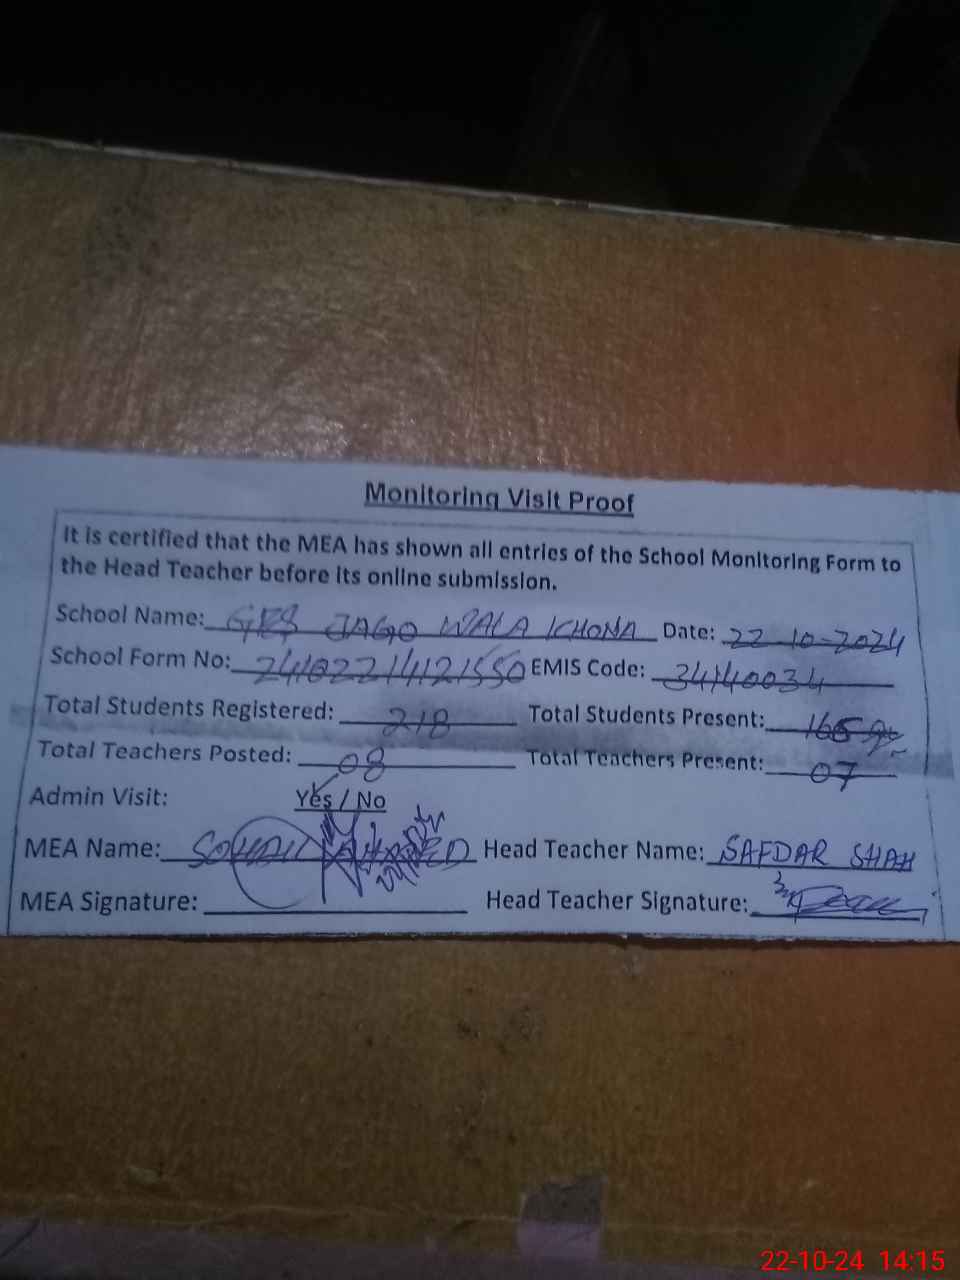 Monitoring Visit Proof
It is certified that the MEA has shown all entries of the School Monitoring Form to
the Head Teacher before its online submission.
School Name: GES JAGO WALA KHONA Date: 22-10-2024
School Form No: 24102214121550 EMIS Code: 34140034
Total Students Registered: 218 Total Students Present: 165
Total Teachers Posted: 08 Total Teachers Present: 07
Admin Visit: Yes / No
MEA Name: SOHAIL Head Teacher Name: SAFDAR SHAH
MEA Signature: Head Teacher Signature:
22-10-24 14:15